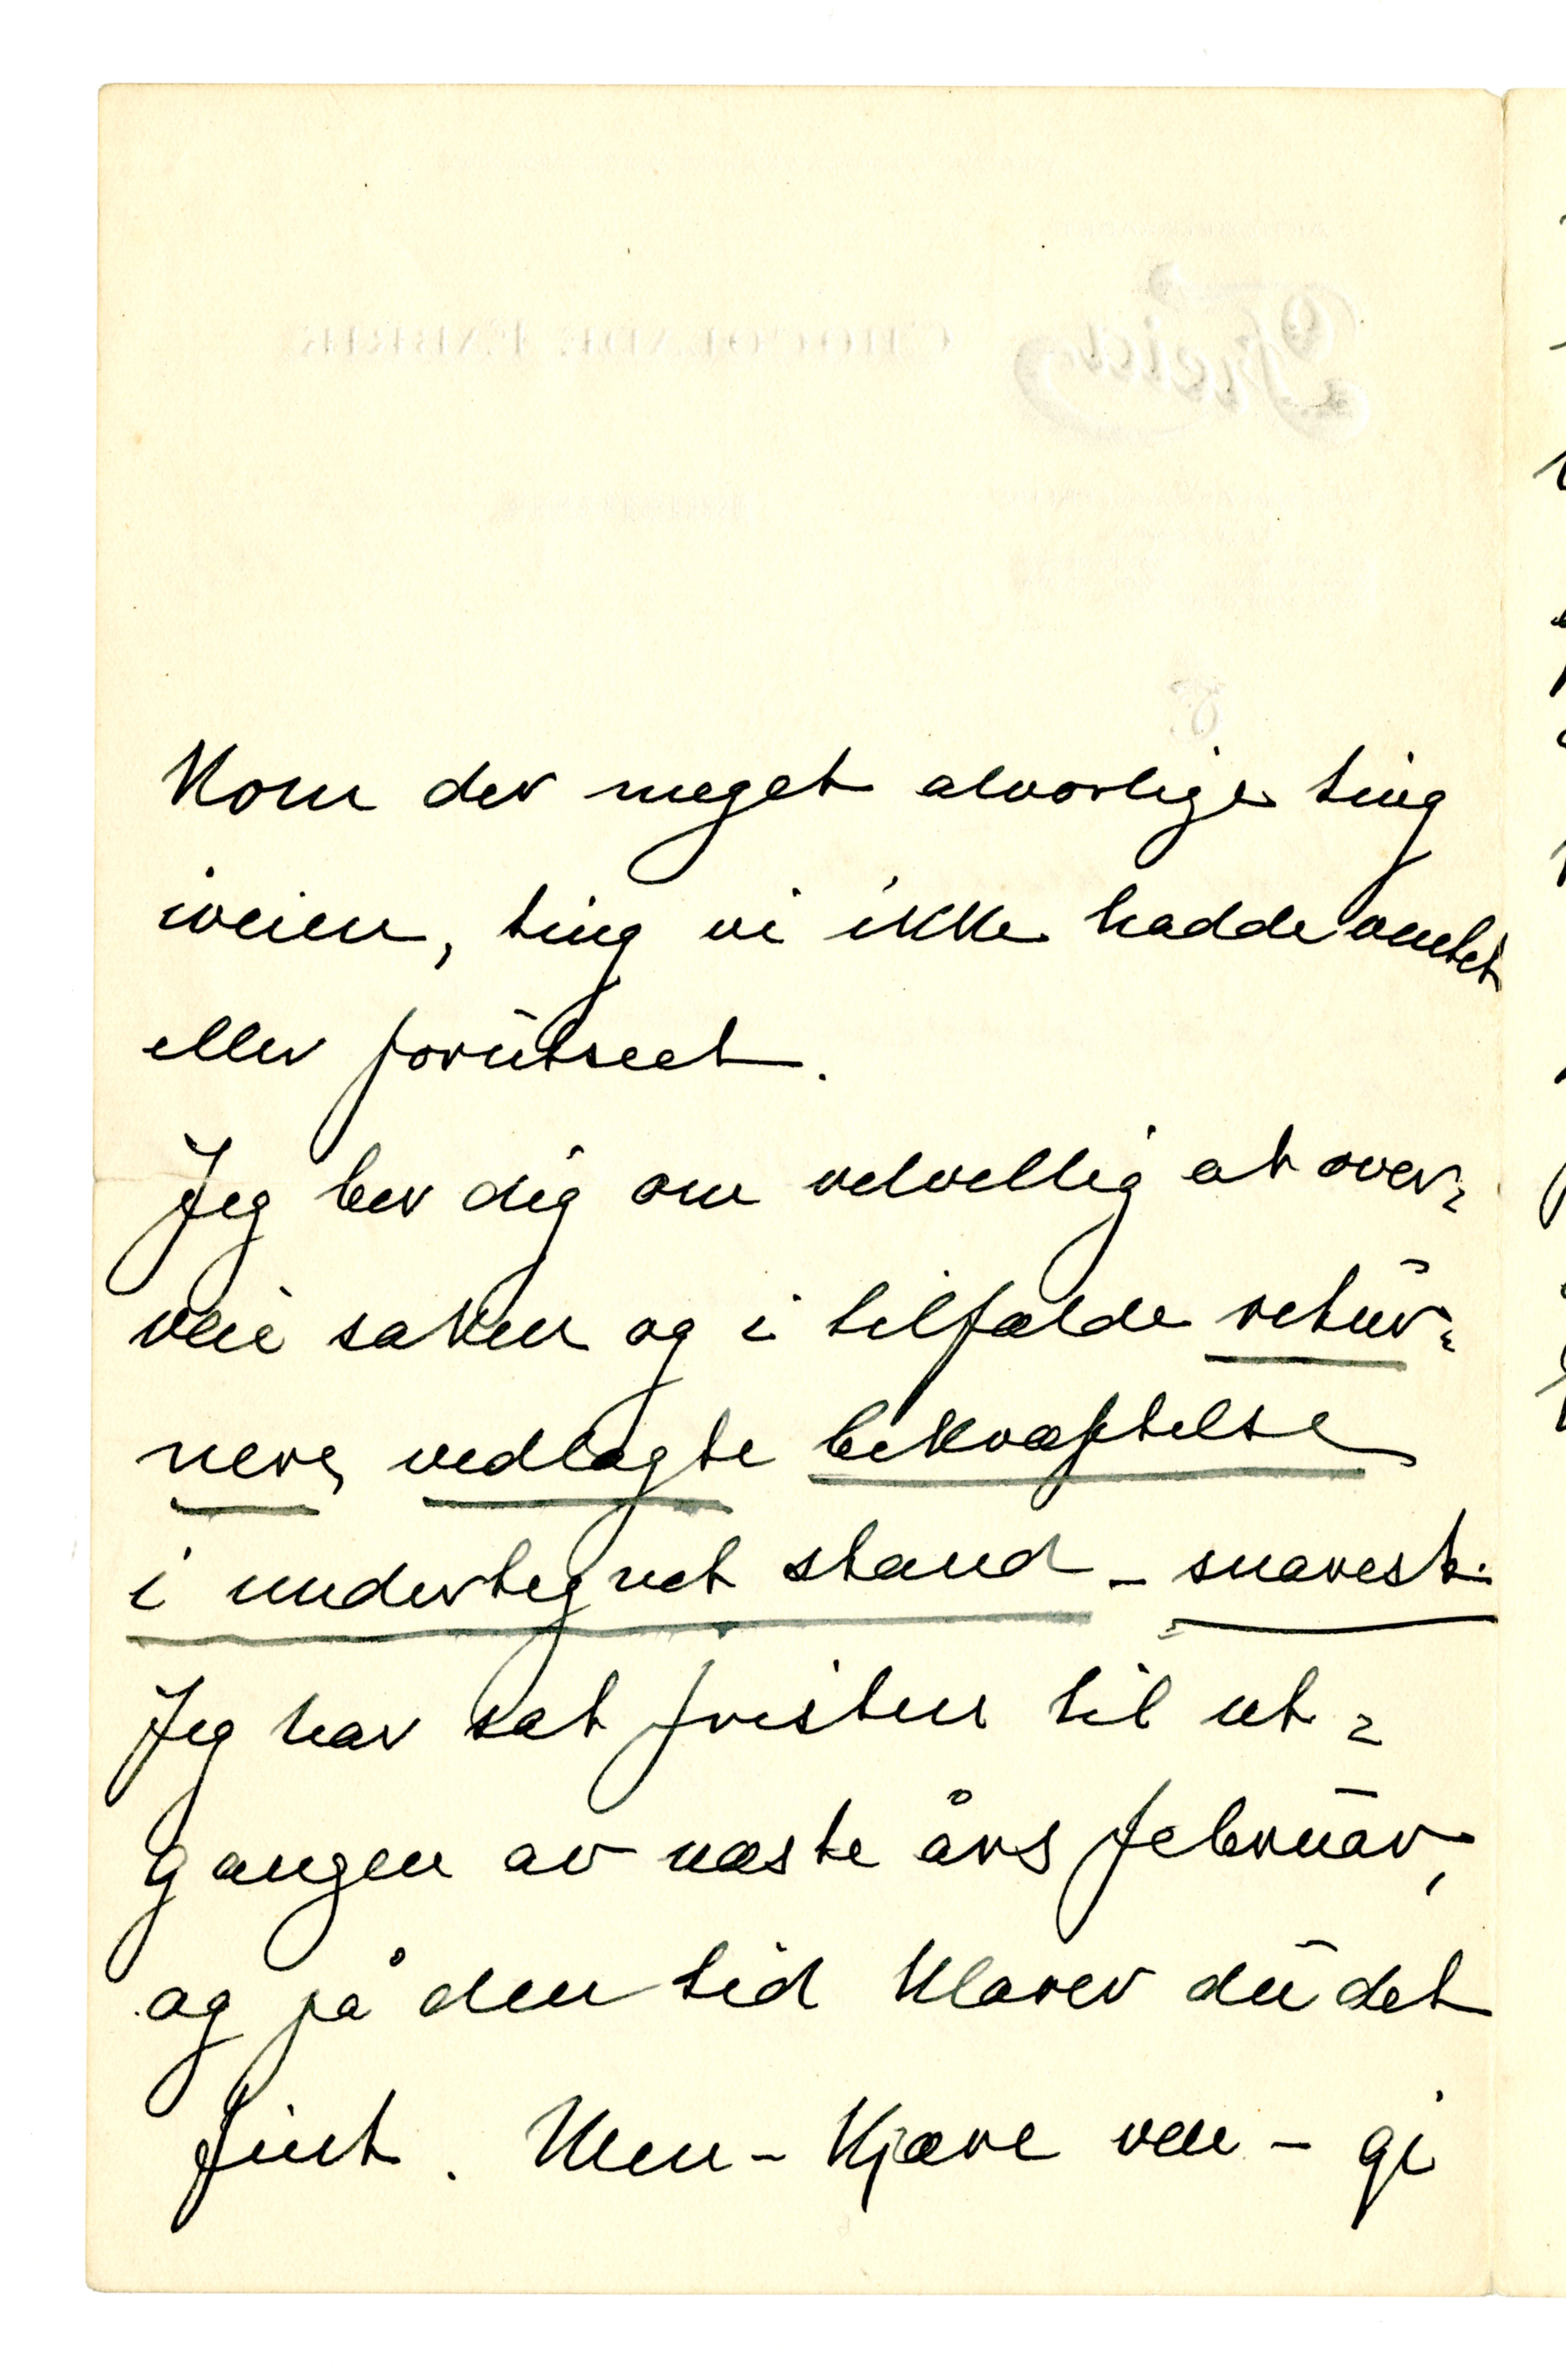 Kom der meget alvorlige ting
iveien, ting vi ikke hadde ventet
eller forutseet.
Jeg ber dig om velvillig at over-
veie saken og i tilfælde retur-
nere vedlagte bekræftelse
i undertegnet stand - snarest.
Jeg har sat fristen til ut-
gangen av næste års februar,
og på den tid klarer du det
fint. Men - Kjære ven - gi